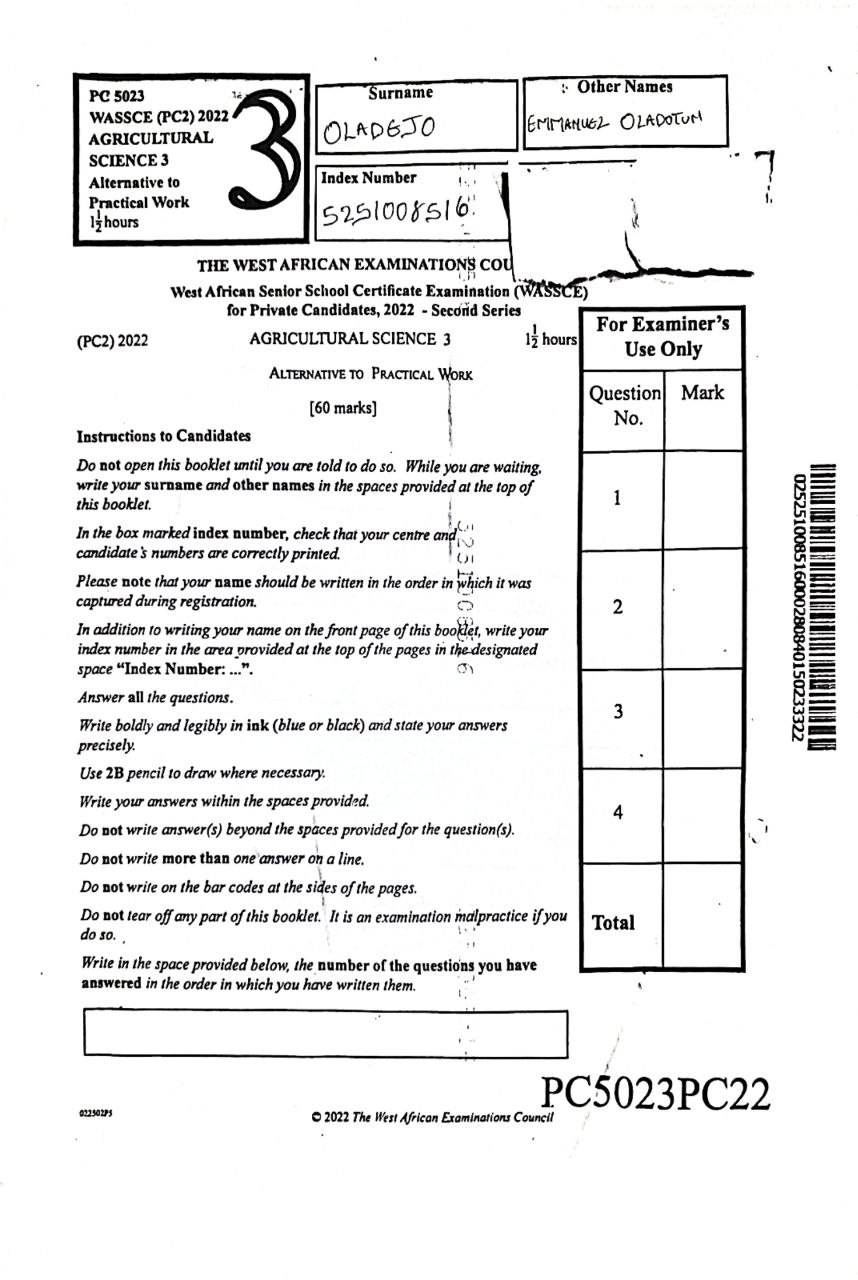 PC 5023
WASSCE (PC2) 2022
AGRICULTURAL
SCIENCE 3
Alternative to
Practical Work
1½ hours
3
Surname
OLADEJO
Other Names
EMMANUEL OLADOTUN
Index Number
5251008516
THE WEST AFRICAN EXAMINATIONS COU
West African Senior School Certificate Examination (WASSCE)
for Private Candidates, 2022 - Second Series
(PC2) 2022 AGRICULTURAL SCIENCE 3 1½ hours
ALTERNATIVE TO PRACTICAL WORK
[60 marks]
Instructions to Candidates
Do not open this booklet until you are told to do so. While you are waiting,
write your surname and other names in the spaces provided at the top of
this booklet.
In the box marked index number, check that your centre and
candidate's numbers are correctly printed.
Please note that your name should be written in the order in which it was
captured during registration.
In addition to writing your name on the front page of this booklet, write your
index number in the area provided at the top of the pages in the designated
space "Index Number: ...".
Answer all the questions.
Write boldly and legibly in ink (blue or black) and state your answers
precisely.
Use 2B pencil to draw where necessary.
Write your answers within the spaces provided.
Do not write answer(s) beyond the spaces provided for the question(s).
Do not write more than one answer on a line.
Do not write on the bar codes at the sides of the pages.
Do not tear off any part of this booklet. It is an examination malpractice if you
do so.
Write in the space provided below, the number of the questions you have
answered in the order in which you have written them.
For Examiner's
Use Only
Question
No.
Mark
1
2
3
4
Total
025251008516000280840150233322
PC5023PC22
022502P5
© 2022 The West African Examinations Council